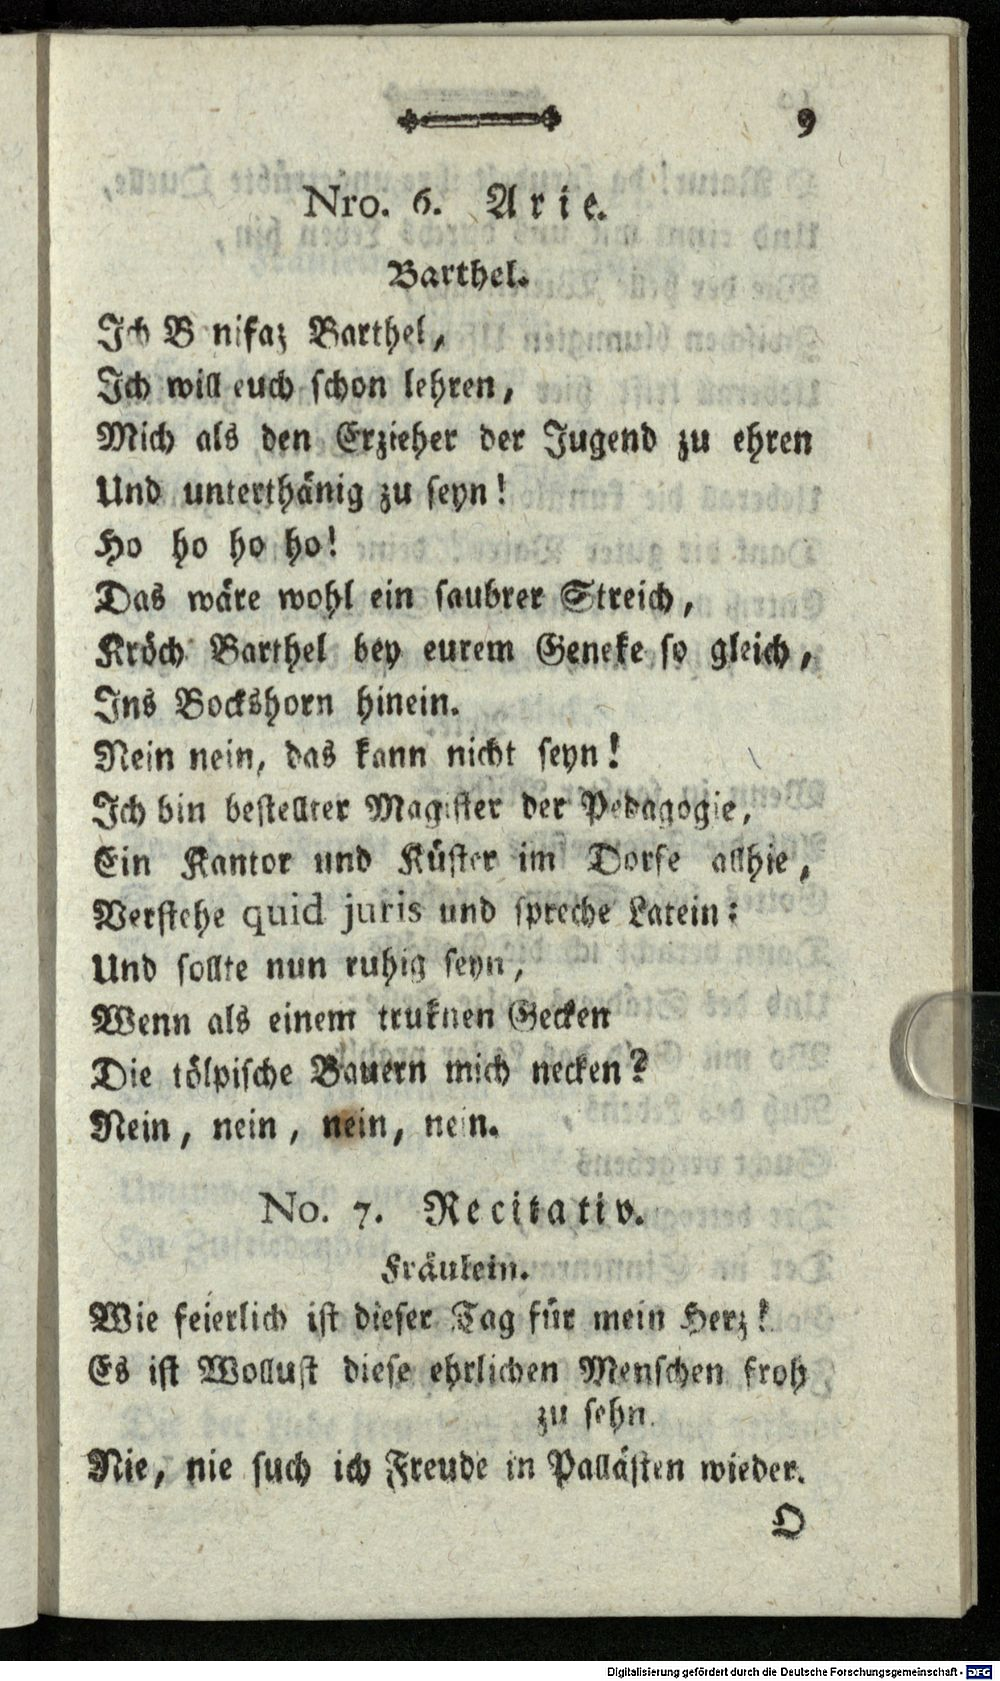 9
Nro. 6. Arie.
Barthel.
Ich B nifaz Barthel,
Ich will euch schon lehren,
Mich als den Erzieher der Jugend zu ehren
Und unterthänig zu seyn!
Ho ho ho ho!
Das wäre wohl ein saubrer Streich,
Kröch Barthel bey eurem Geneke so gleich,
Ins Bockshorn hinein.
Nein nein, das kann nicht seyn!
Ich bin bestellter Magister der Pedagogie,
Ein Kantor und Küster im Dorfe allhie,
Verstehe quid juris und spreche Latein:
Und sollte nun ruhig seyn,
Wenn als einem truknen Gecken
Die tölpische Bauern mich necken?
Nein, nein, nein, nein.
No. 7. Recitativ.
Fräulein.
Wie feierlich ist dieser Tag für mein Herz!
Es ist Wollust diese ehrlichen Menschen froh
zu sehn.
Nie, nie such ich Freude in Pallästen wieder.
O
Digitalisierung gefördert durch die Deutsche Forschungsgemeinschaft - DFG